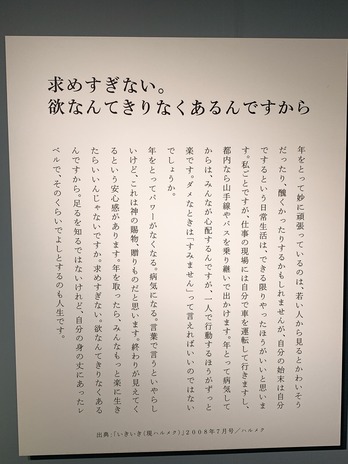 求めすぎない。
欲なんてきりなくあるんですから
年をとって妙に頑張っているのは、若い人から見るとかわいそう
だったり、醜くかったりするかもしれませんが、自分の始末は自分
でするという日常生活は、できる限りやったほうがいいと思いま
す。私ごとですが、仕事の現場には自分で車を運転して行きますし、
都内なら山手線やバスを乗り継いで出かけます。年とって病気して
からは、みんなが心配するんですが、一人で行動するほうがずっと
楽です。ダメなときは「すみません」って言えればいいのではない
でしょうか。
年をとってパワーがなくなる。病気になる。言葉で言うといやらし
いけど、これは神の賜物、贈りものだと思います。終わりが見えてく
るという安心感があります。年を取ったら、みんなもっと楽に生き
たらいいんじゃないですか。求めすぎない。欲なんてきりなくある
んですから。足るを知るではないけれど、自分の身の丈にあったレ
ベルで、そのくらいでよしとするのも人生です。
出典:「いきいき(現ハルメク)」2008年7月号/ハルメク